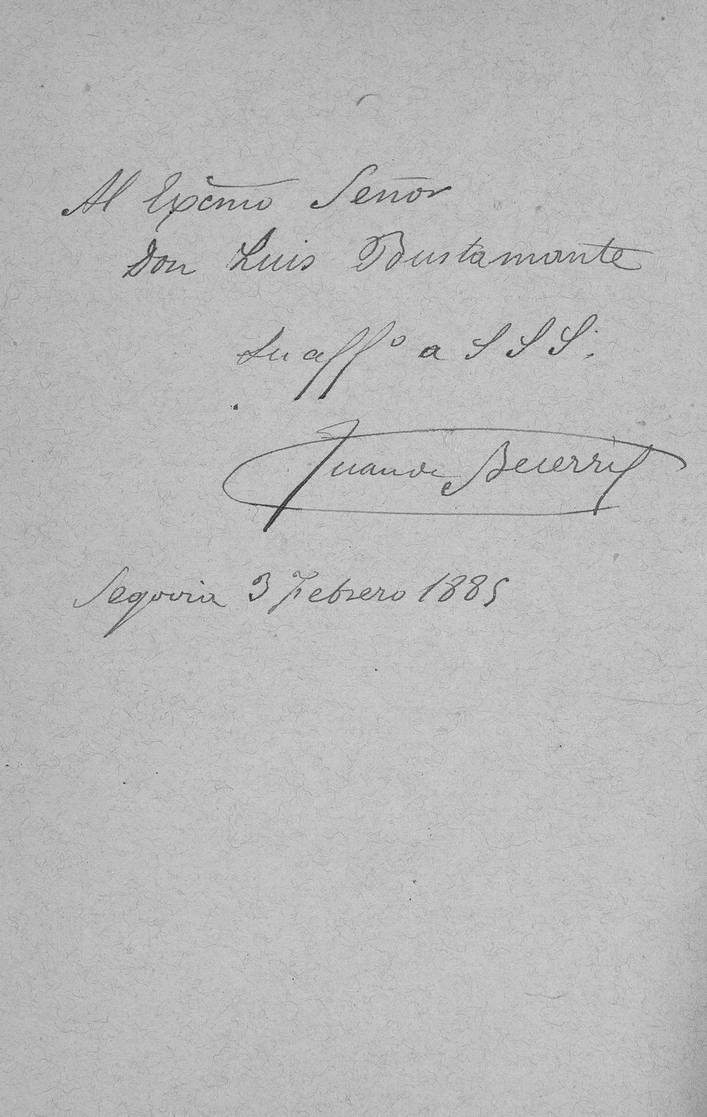 Al Excmo Señor
Don Luis Bustamante
Su affº a S S S.
Juan de Becerril
Segovia 3 Febrero 1885